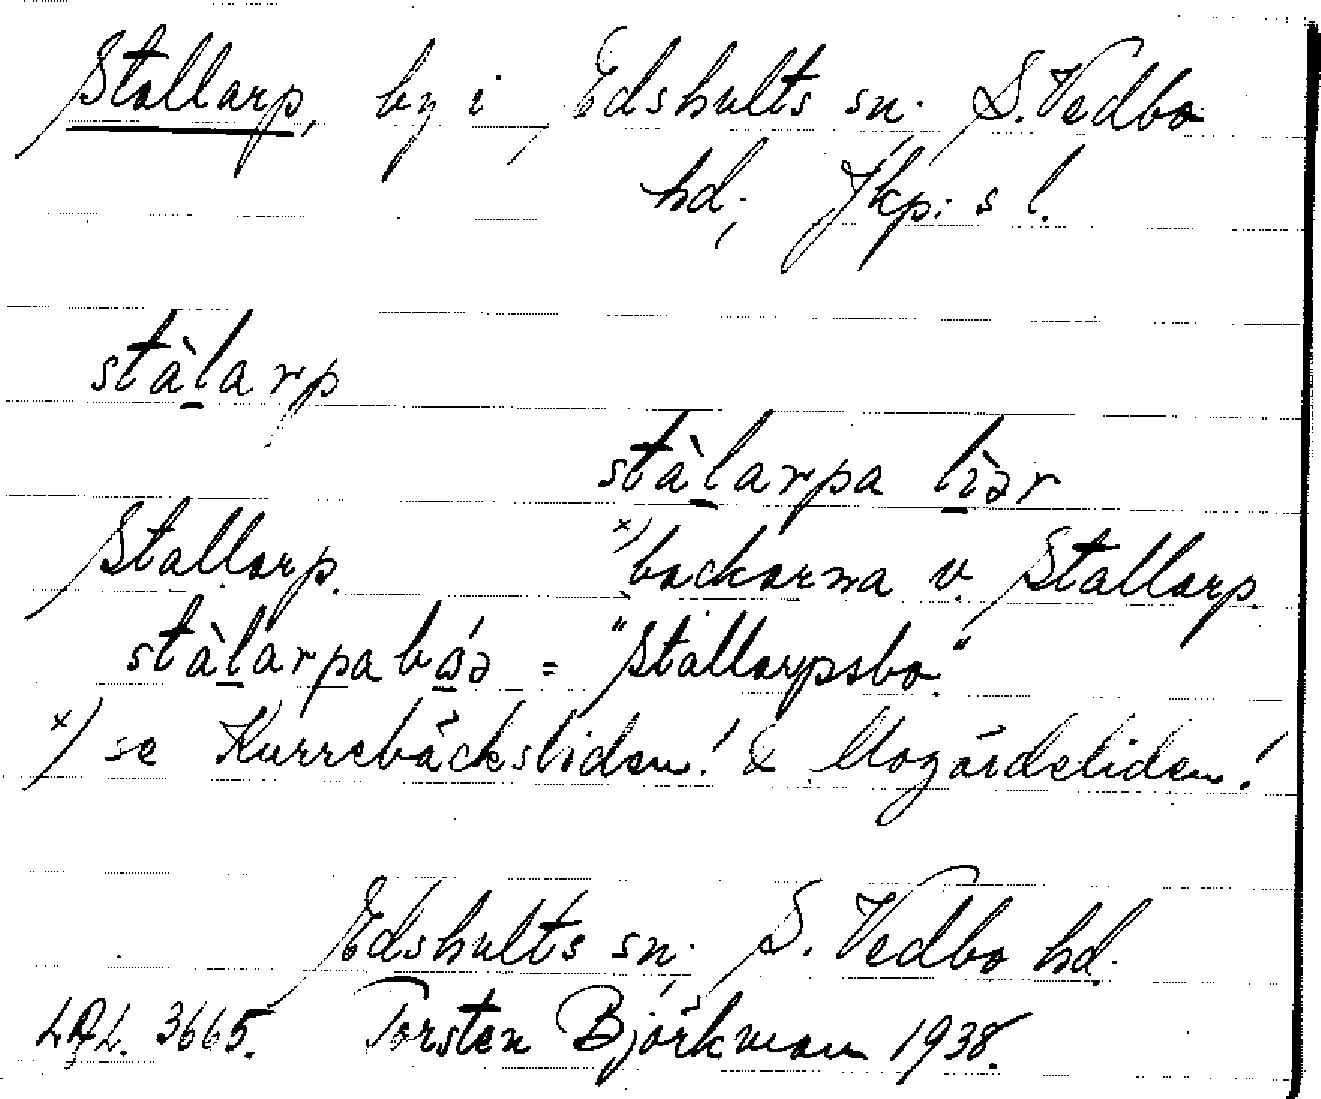 Stallarp, by i Edshults sn. S. Vedbo
hd., Jkp:s l.
stàlarp
stàlarpa lìər
Stallarp. x) backarna v. Stallarp.
stàlarpabóə = "Stallarpsbo."
x) se Kurrebäcksliden! & Mogärdeliden!
Edshults sn., S. Vedbo hd.
3665. Torsten Björkman 1938.